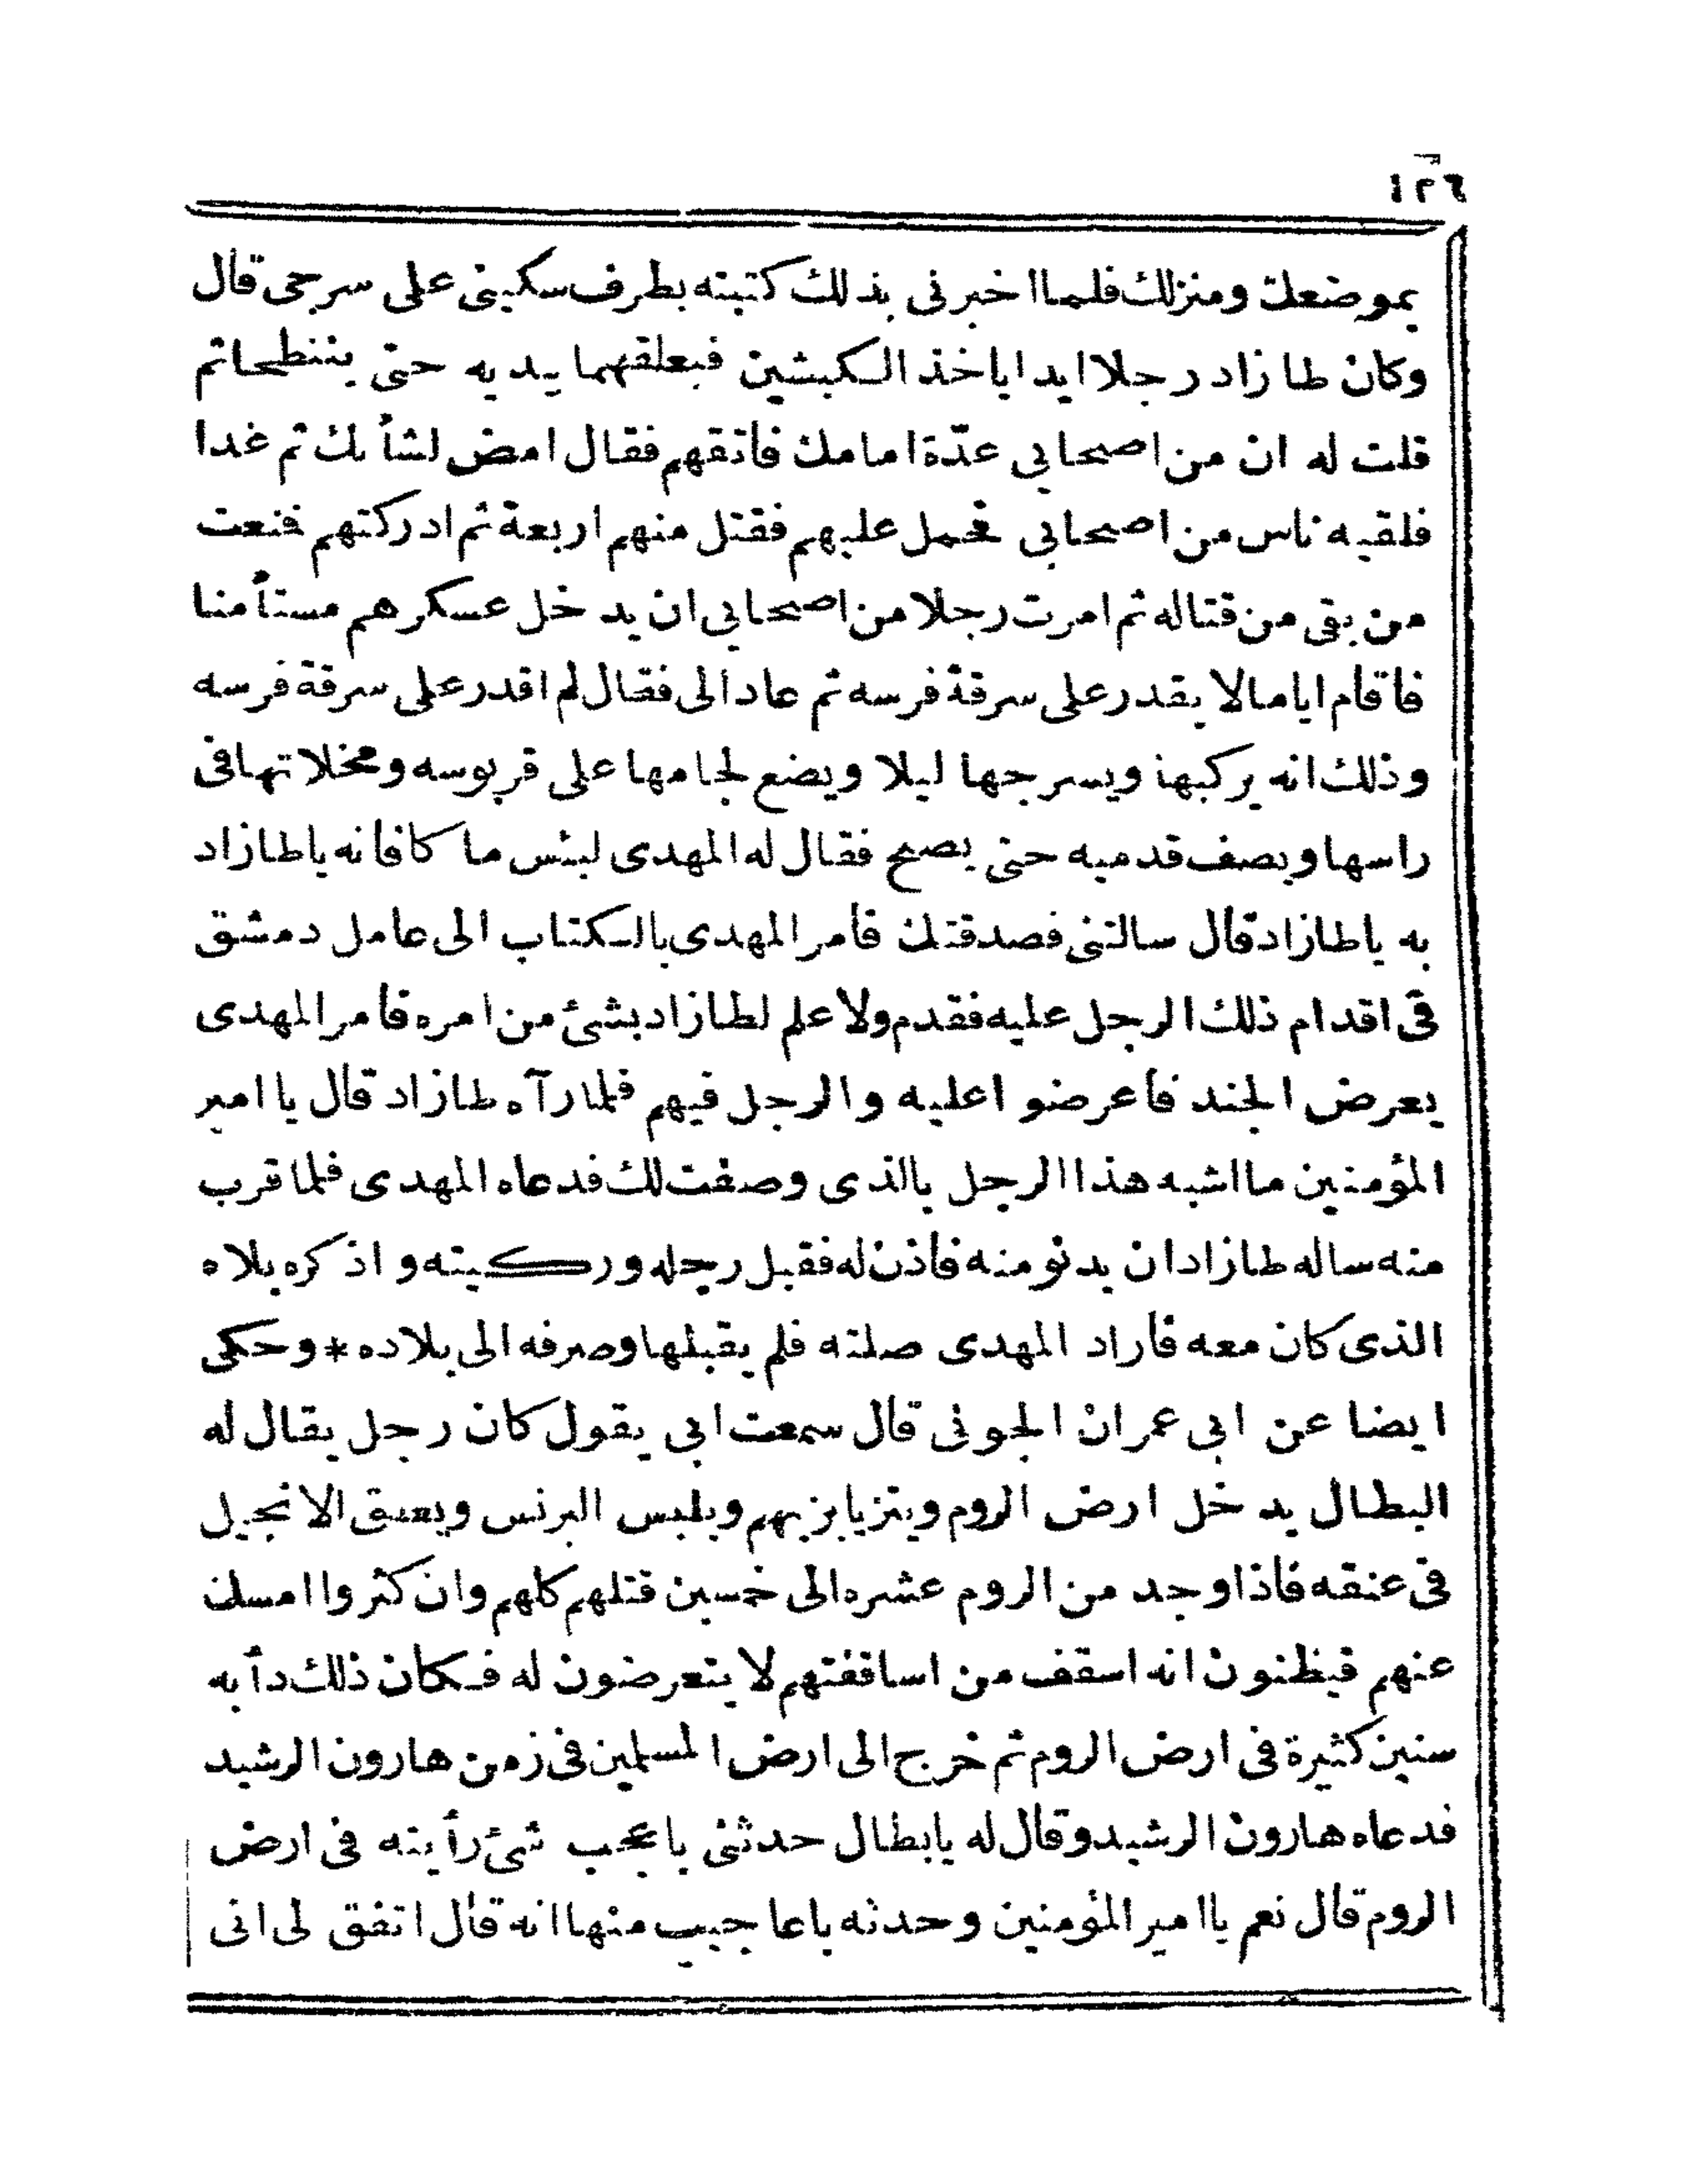 ١٢٦
بموضعك ومنزلك فلما اخبرنى بذلك كتبته بطرف سكينى على سرجى قال
وكان طازاد رجلا ايدا ياخذ الكبشين فيعلقهما بيديه حتى ينتطحا ثم
قلت له ان من اصحابى عدّة امامك فاتقهم فقال امض لشأنك ثم غدا
فلقيه ناس من اصحابى فحمل عليهم فقتل منهم اربعة ثم ادركتهم فنعت
من بقى من قتاله ثم امرت رجلا من اصحابى ان يدخل عسكرهم مستأمنا
فاقام اياما لا يقدر على سرقة فرسه ثم عاد الى فقال لم اقدر على سرقة فرسه
وذلك انه يركبها ويسرجها ليلا ويضع لجامها على قربوسه ومخلاتها فى
راسها ويصف قدميه حتى يصبح فقال له المهدى لبئس ما كافانه ياطازاد
به ياطازاد قال سالتنى فصدقتك فأمر المهدى بالكتاب الى عامل دمشق
فى اقدام ذلك الرجل عليه فقدم ولا علم لطازاد بشئ من امره فأمر المهدى
يعرض الجند فأعرضوا عليه والرجل فيهم فلما رآه طازاد قال يا امير
المؤمنين ما اشبه هذا الرجل بالذى وصفت لك فدعاه المهدى فلما قرب
منه ساله طازاد ان يدنو منه فاذن له فقبل رجله وركبته واذكره بلاه
الذى كان معه فأراد المهدى صلته فلم يقبلها وصرفه الى بلاده * وحكى
ايضا عن ابى عمران الجونى قال سمعت ابى يقول كان رجل يقال له
البطال يدخل ارض الروم ويتزيا بزيهم ويلبس البرنس ويعبق الانجيل
فى عنقه فاذا وجد من الروم عشره الى خمسين قتلهم كلهم وان كثروا امسك
عنهم فيظنون انه اسقف من اساقفتهم لا يتعرضون له فكان ذلك دأبه
سنين كثيرة فى ارض الروم ثم خرج الى ارض المسلمين فى زمن هارون الرشيد
فدعاه هارون الرشيد وقال له يابطال حدثنى باعجب شئ رأيته فى ارض
الروم قال نعم ياامير المؤمنين وحدثه باعاجيب منها انه قال اتفق لى انى